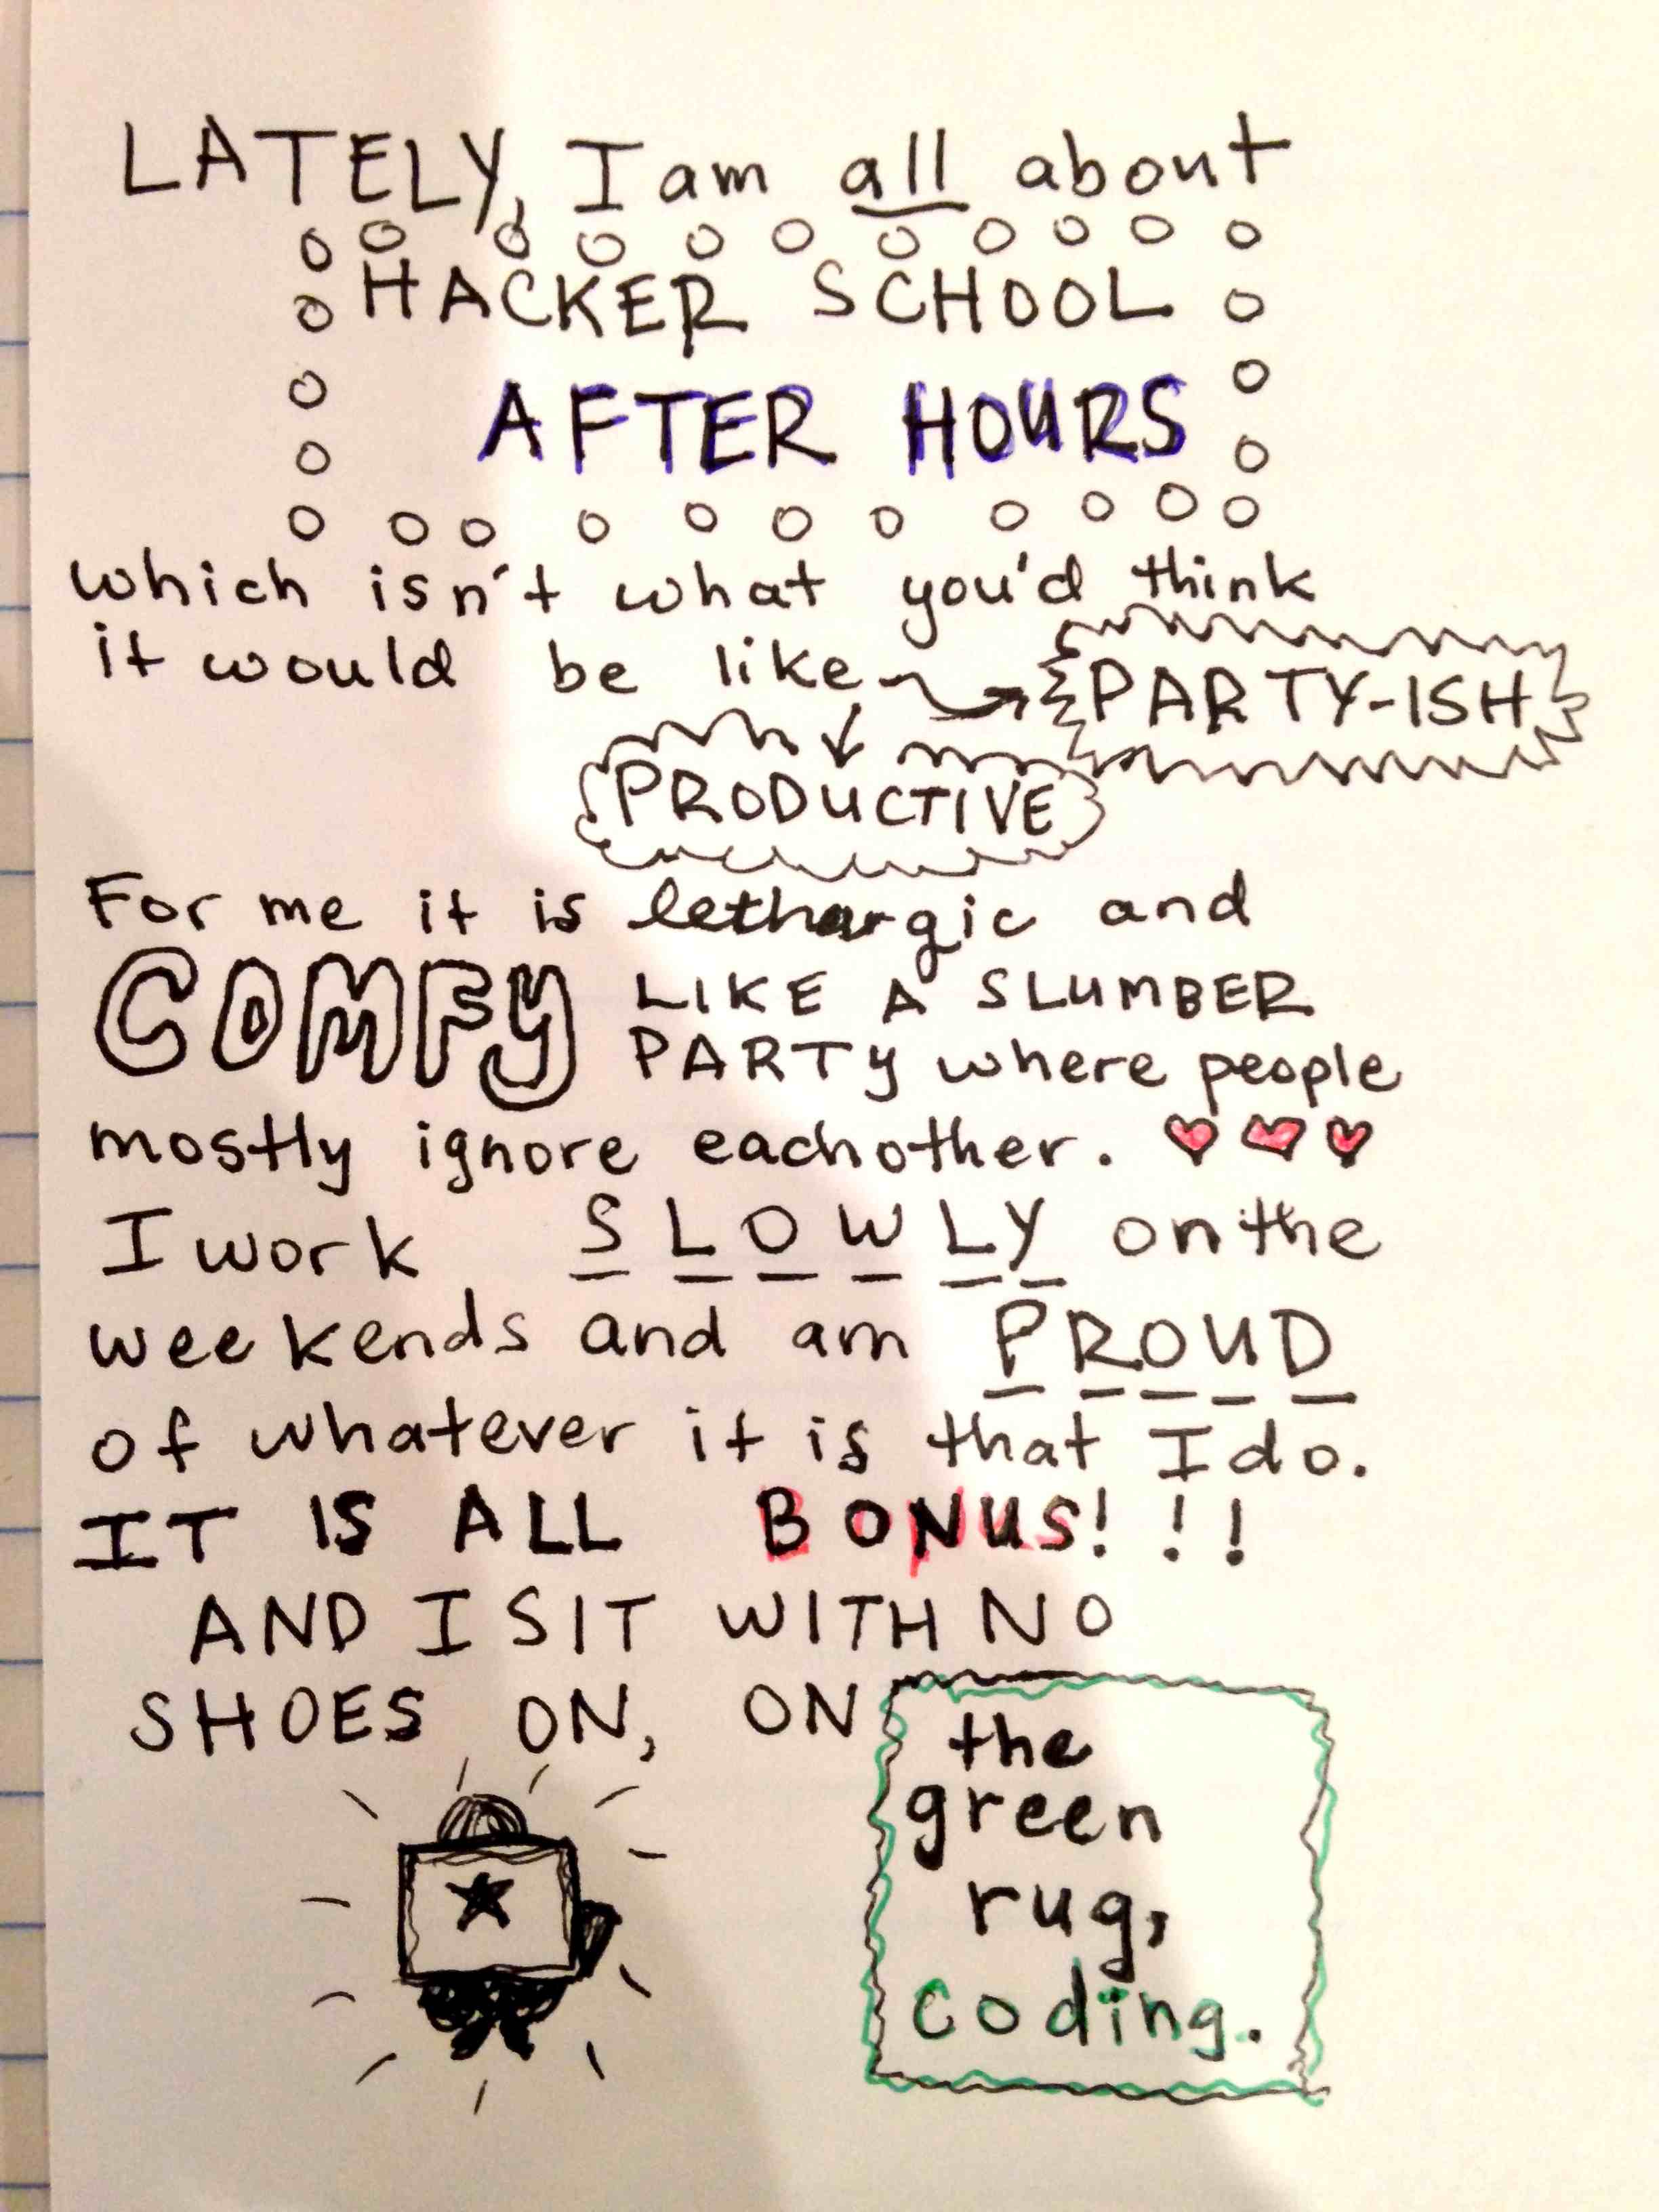 LATELY, I am all about
HACKER SCHOOL
AFTER HOURS
which isn't what you'd think
it would be like
PARTY-ISH
PRODUCTIVE
For me it is lethargic and
COMFY LIKE A SLUMBER
PARTY where people
mostly ignore eachother.
I work SLOWLY on the
weekends and am PROUD
of whatever it is that I do.
IT IS ALL BONUS!!!
AND I SIT WITH NO
SHOES ON, ON
the
green
rug,
coding.